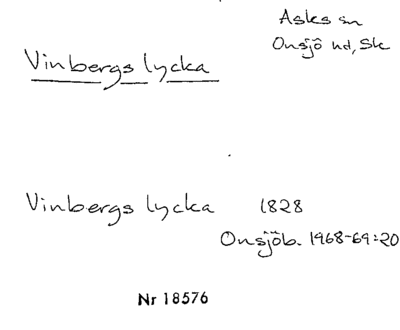 Asks sn
Onsjö hd, Sk
Vinbergs lycka
Vinbergs lycka 1828
Onsjöb. 1968-69:20
Nr 18576